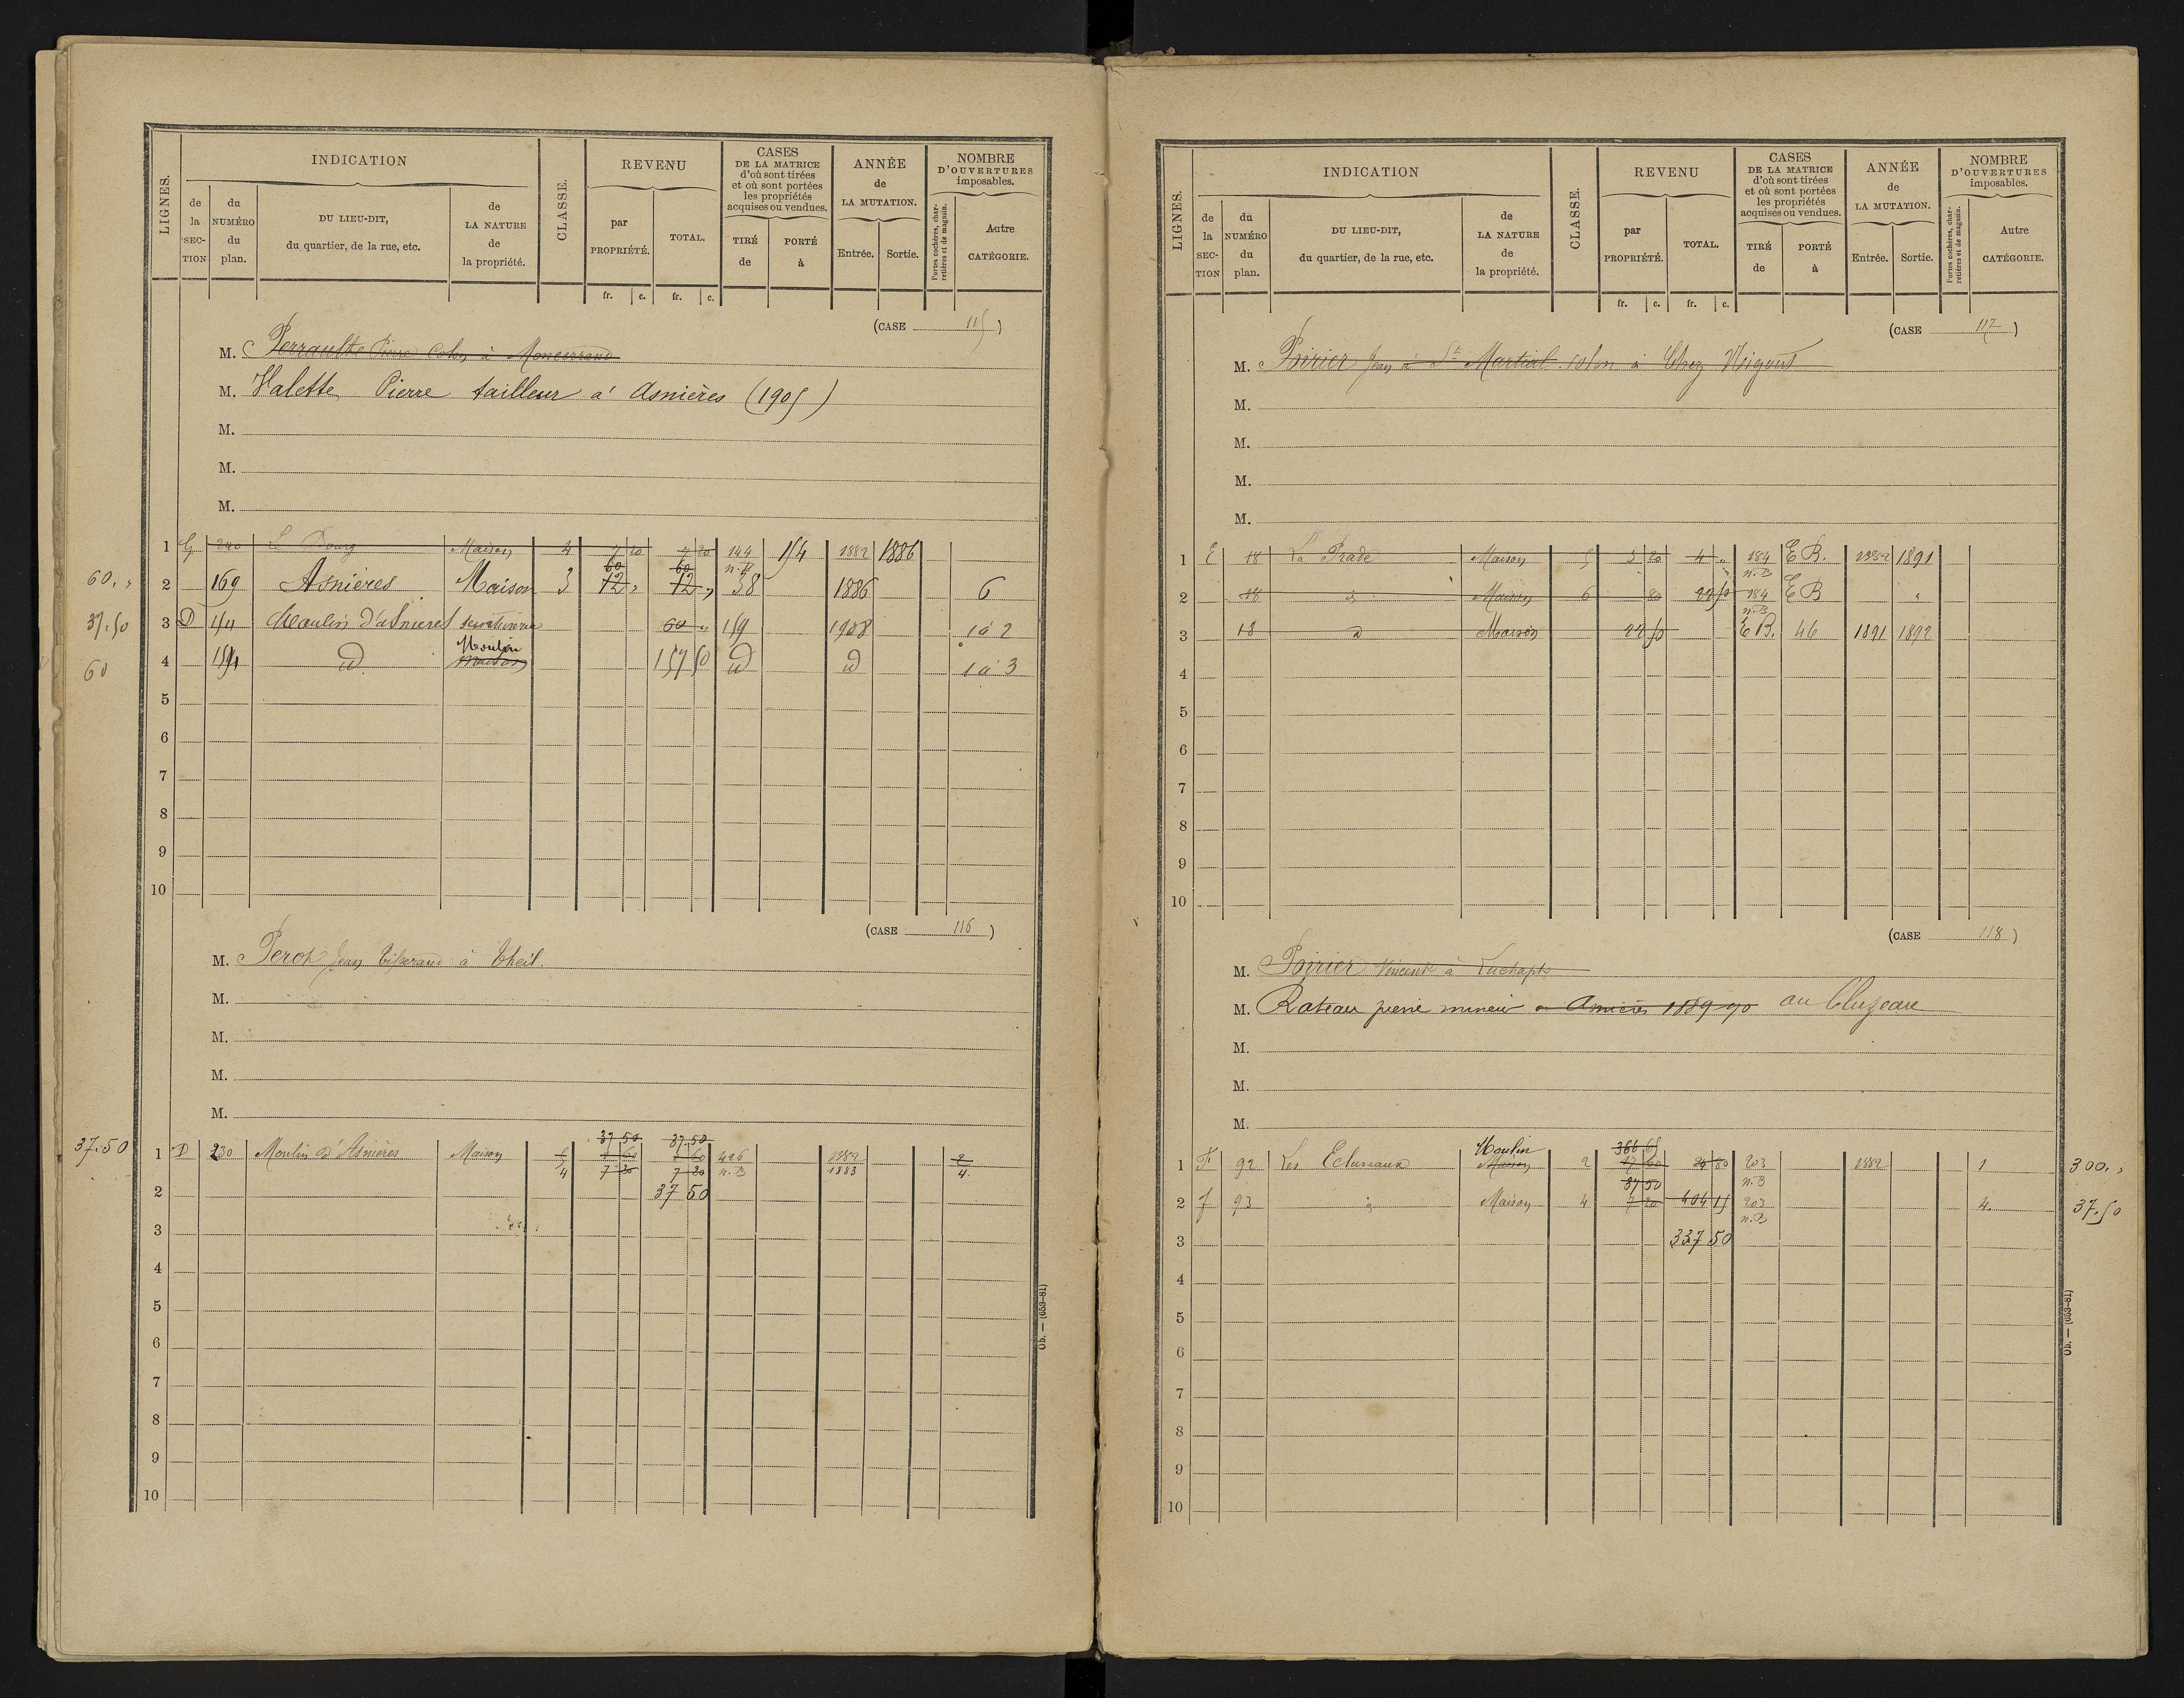 LIGNES.
INDICATION
de la SECTION
du NUMÉRO du plan.
DU LIEU-DIT, du quartier, de la rue, etc.
de LA NATURE de la propriété.
CLASSE.
REVENU
par PROPRIÉTÉ.
TOTAL.
CASES DE LA MATRICE d'où sont tirées et où sont portées les propriétés acquises ou vendues.
TIRÉ de
PORTÉ à
ANNÉE de LA MUTATION.
Entrée.
Sortie.
NOMBRE D'OUVERTURES imposables.
Portes cochères, charretières et de magasin.
Autre CATÉGORIE.
fr. c. fr. c.
(CASE 115)
M. Perraulte Pierre Colon à
M. Valette Pierre tailleur à Asnières (1905)
M.
M.
M.
1 G 240 Le Bourg Maison 4 7 20 7 20 144 n.B 154 1882 1886
60 60
60. " 2 169 Asnières Maison 3 12 " 12 " 38 1886 6
37.50 3 D 154 Moulin d'Asnieres 60 " 159 1908 1 à 2
Moulin
60 4 154 id maison 157 50 id id 1 à 3
5
6
7
8
9
10
(CASE 116)
M. Perot Jean Tisserand à Theil.
M.
M.
M.
M.
37 50 37 50
37.50 1 D 230 Moulin d'Asnières Maison 60 60 426 1882 2
4 7 20 7 20 n.B 1883 4.
2 37 50
3
4
5
6
7
8
9
10
Ob. — (653-81)
LIGNES.
INDICATION
de la SECTION
du NUMÉRO du plan.
DU LIEU-DIT, du quartier, de la rue, etc.
de LA NATURE de la propriété.
CLASSE.
REVENU
par PROPRIÉTÉ.
TOTAL.
CASES DE LA MATRICE d'où sont tirées et où sont portées les propriétés acquises ou vendues.
TIRÉ de
PORTÉ à
ANNÉE de LA MUTATION.
Entrée.
Sortie.
NOMBRE D'OUVERTURES imposables.
Portes cochères, charretières et de magasin.
Autre CATÉGORIE.
fr. c. fr. c.
(CASE 117)
M. Poirier Jean à St Martial colon à Chez
M.
M.
M.
M.
1 E 18 La Prade Maison 5 3 20 4 " 184 n.B E B. 1882 1891
2 18 d Maison 6 80 22 50 184 n.B E B "
3 18 d Maison 22 50 E B. 46 1891 1892
4
5
6
7
8
9
10
(CASE 118)
M. Poirier Vincent à Luchapt
M. Rateau pierre mineur a Asnières 1889-90 au Cluzeau
M.
M.
M.
Moulin 366 65
1 F 92 Les Eclureaux Maison 2 17 60 24 80 203 n.B 1882 1 300. "
37 50
2 f 93 d Maison 4 7 20 404 15 203 n.B 4. 37.50
3 337 50
4
5
6
7
8
9
10
Ob. — (653-81)